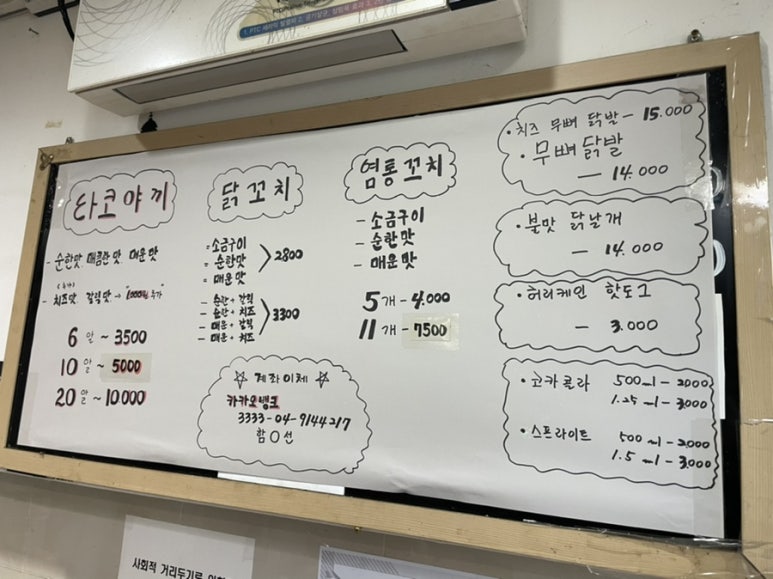 타코야끼
- 순한맛 매콤한맛 매운맛
- 치즈맛 갈릭맛 → 추가
6알 ~ 3500
10알 ~ 5000
20알 ~ 10000
닭꼬치
- 소금구이
- 순한맛
- 매운맛
2800
- 순한 + 갈릭
- 순한 + 치즈
- 매운 + 갈릭
- 매운 + 치즈
3300
☆ 계좌이체 ☆
카카오뱅크
3333-04-9144217
함O선
염통꼬치
- 소금구이
- 순한맛
- 매운맛
5개 - 4.000
11개 - 7500
• 치즈 무뼈 닭발 - 15.000
• 무뼈닭발
- 14.000
• 불맛 닭날개
- 14.000
• 허리케인 핫도그
- 3.000
• 코카콜라 500ml - 2000
1.25ml - 3.000
• 스프라이트 500ml - 2000
1.5ml - 3.000
사회적 거리두기로 인해